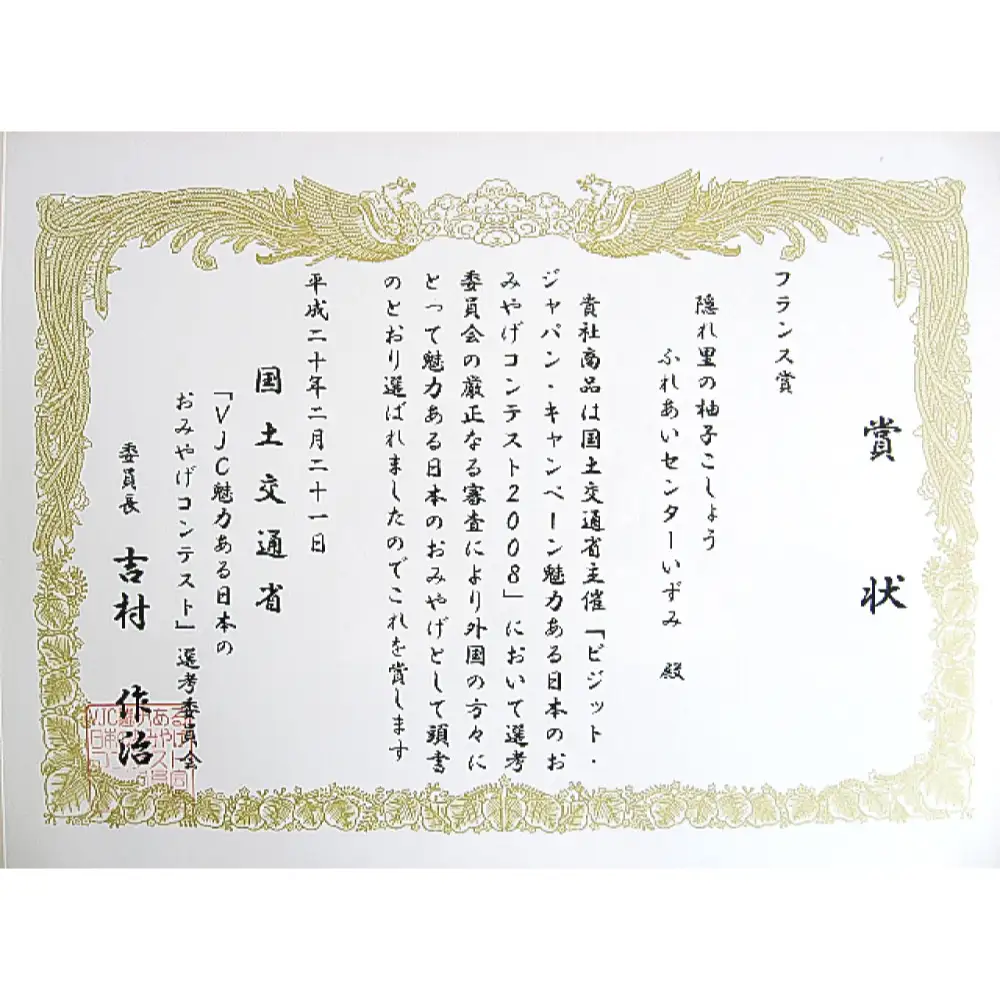 賞状
フランス賞
隠れ里の柚子こしょう
ふれあいセンターいずみ 殿
貴社商品は国土交通省主催「ビジット・
ジャパン・キャンペーン魅力ある日本のお
みやげコンテスト2008」において選考
委員会の厳正なる審査により外国の方々に
とって魅力ある日本のおみやげとして頭書
のとおり選ばれましたのでこれを賞します
平成二十年二月二十一日
国土交通省
「VJC魅力ある日本の
おみやげコンテスト」選考委員会
委員長 吉村 作治